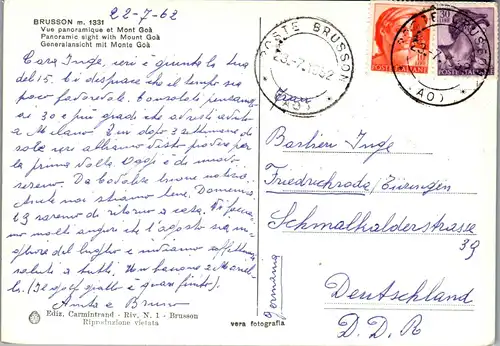 22-7-62
BRUSSON m. 1331
Vue panoramique et Mont Goà
Panoramic sight with Mount Goà
Generalansicht mit Monte Goà
Cara Inge, ieri è giunta la tua
del 15. Ci dispiace che il tempo sia
poco favorevole. Consolati pensando
ai 30 e più gradi che avresti avuto
a Milano. Qui dopo 3 settimane di
sole ieri abbiamo visto piovere per
la prima volta. Oggi è di nuovo
sereno. Da Codalze buone notizie.
Anche noi stiamo bene. Domenica
29 saremo di ritorno a casa. Vi facciamo
molti auguri che l'agosto sia migliore
del luglio e inviamo affettuosi
saluti a tutti. Un bacione a
(Il golf giallo è quasi finito).
Anita e Bruno
Ediz. Carmintrand - Riv. N. 1 - Brusson
Riproduzione vietata
vera fotografia
POSTE BRUSSON
23.-7.1962
(AO)
POSTE ITALIANE
30 LIRE
POSTE ITALIANE
POSTE BRUSSON
(AO)
Barbieri Inge
Friedrichroda/Türingen
Schmalkalderstrasse
39
Deutschland
D. D. R
Germania